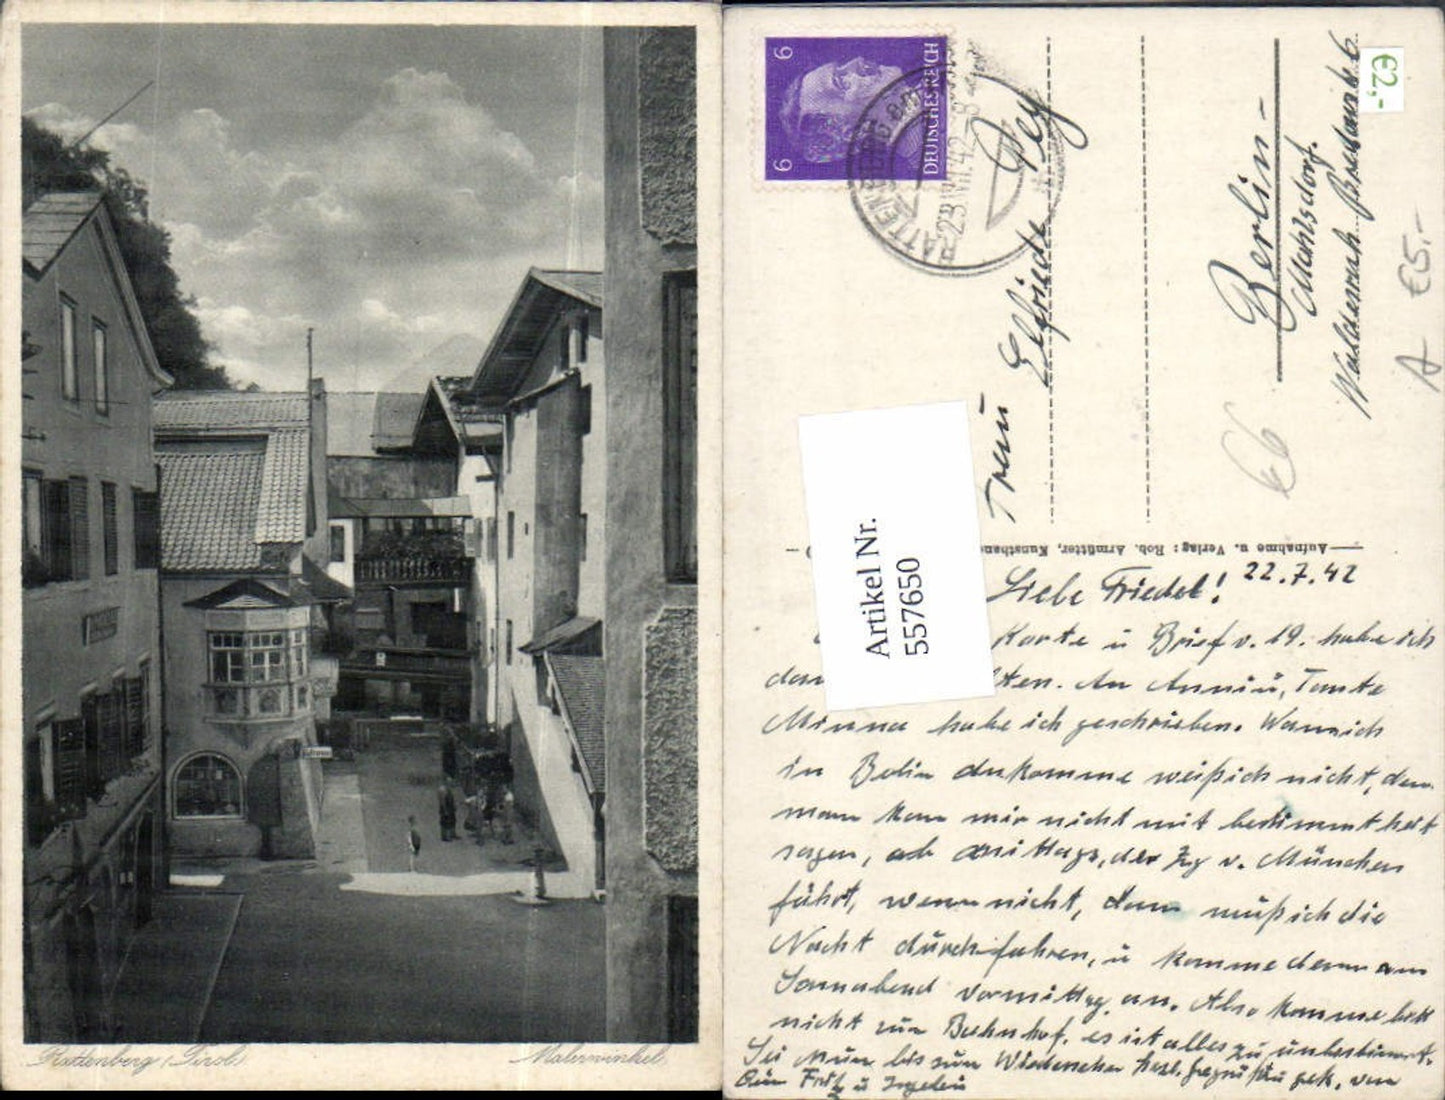 Rattenberg (Tirol)
Malerwinkel
6
6
DEUTSCHES REICH
RATTENBERG
23.VII.42-8
€2,-
A €5.-
66
Artikel Nr.
557650
Frau
Elfriede Pey
Berlin-
Mahlsdorf.
Waldemarb
Aufnahme u. Verlag: Rob. Armütter, Kunsthand
22.7.42
Liebe Friedel!
Karte u Brief v. 19. habe ich
lten. An Anniu, Tante
Minna habe ich geschrieben. Wann ich
in Berlin ankomme weiß ich nicht, den
man kann mir nicht mit bestimmtheit
sagen, ob mittags, der Zug v. München
fährt, wenn nicht, dann muß ich die
Nacht durchfahren, u komme dann am
Sonnabend vormittag an. Also komme bitt
nicht zum Bahnhof, es ist alles zu unbestimmt.
Sei nun bis zum Wiedersehen herzl. gegrüßt u gek. von
Fritz u